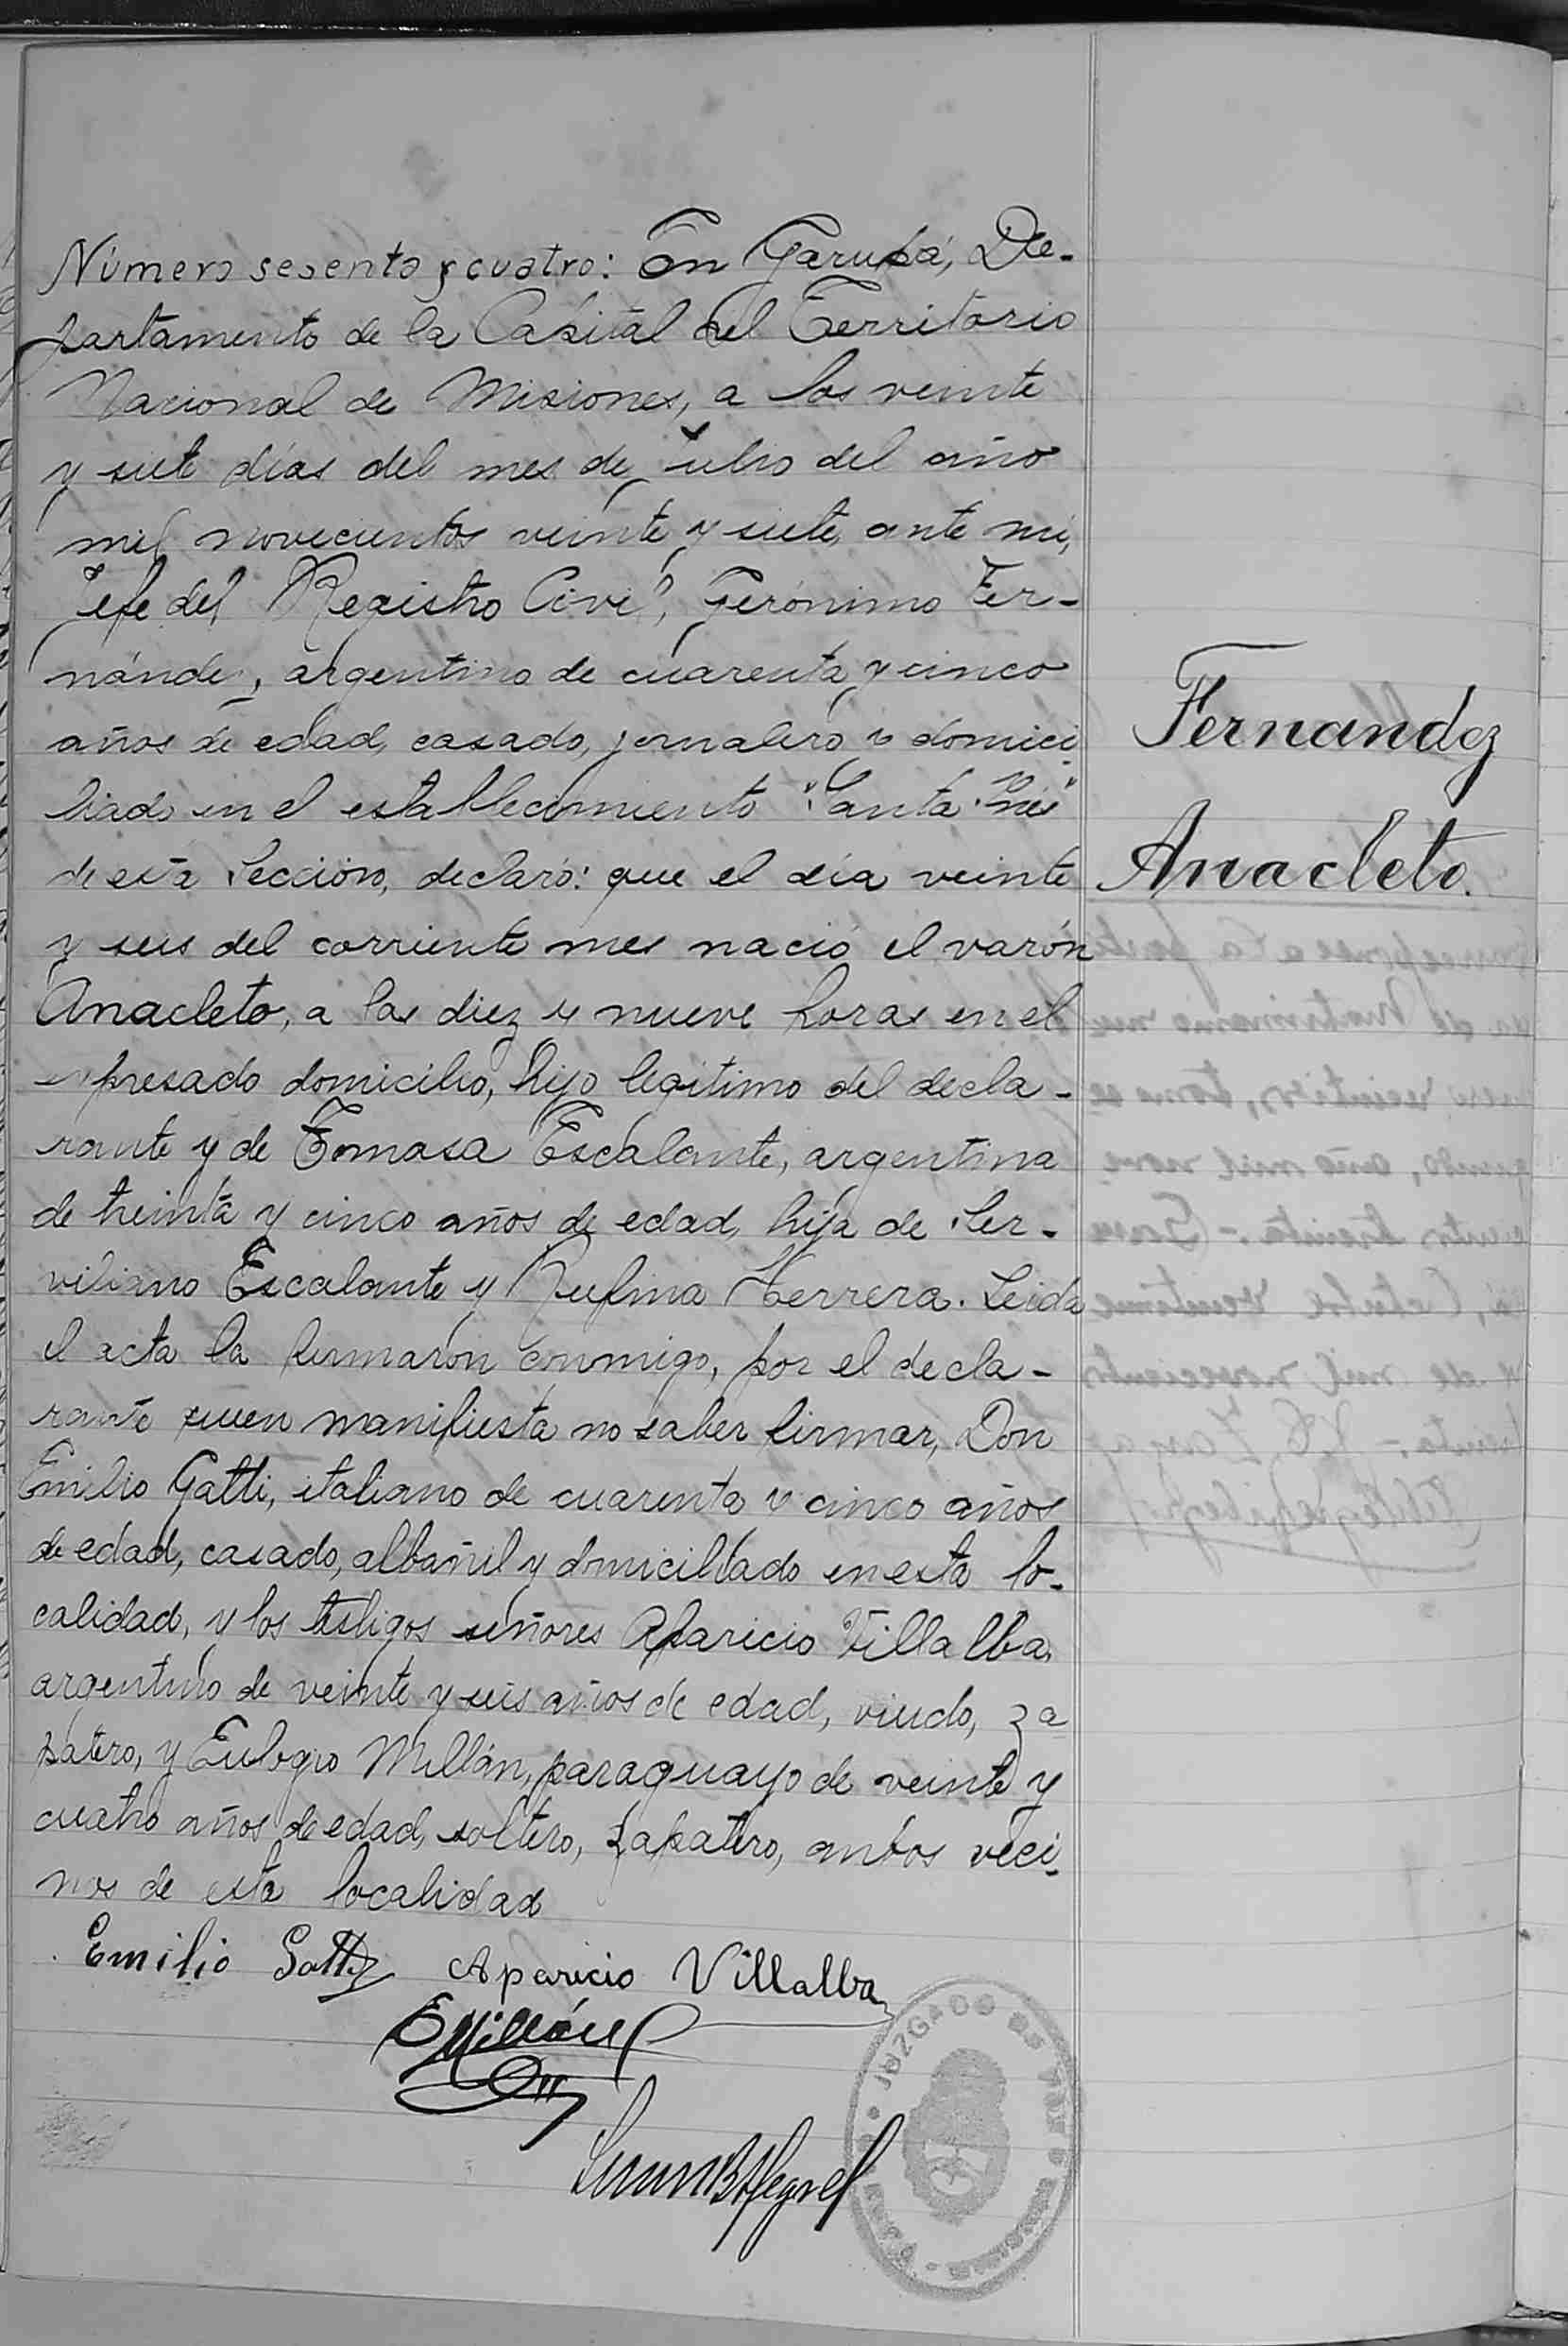 Número sesenta y cuatro: En Garupá, De-
partamento de la Capital del Territorio
Nacional de Misiones, a los veinte
y siete días del mes de Julio del año
mil novecientos veinte y siete, ante mí,
Jefe del Registro Civil, Gerónimo Fer-
nández, argentino de cuarenta y cinco
años de edad, casado, jornalero y domici-
liado en el establecimiento "Santa Inés"
de esta Sección, declaró: que el día veinte
y seis del corriente mes nació el varón
Anacleto, a las diez y nueve horas en el
expresado domicilio, hijo legítimo del decla-
rante y de Tomasa Escalante, argentina
de treinta y cinco años de edad, hija de Ser-
viliano Escalante y Rufina Herrera. Leida
el acta la firmaron conmigo, por el decla-
rante quien manifiesta no saber firmar, Don
Emilio Gatti, italiano de cuarenta y cinco años
de edad, casado, albañil y domiciliado en esta lo-
calidad, y los testigos señores Aparicio Villalba,
argentino de veinte y seis años de edad, viudo, za
patero, y Eulogio Millán, paraguayo de veinte y
cuatro años de edad, soltero, zapatero, ambos veci-
nos de esta localidad
Emilio Gatti Aparicio Villalba
EMillán
JUZGADO DE PAZ
Fernandez
Anacleto.